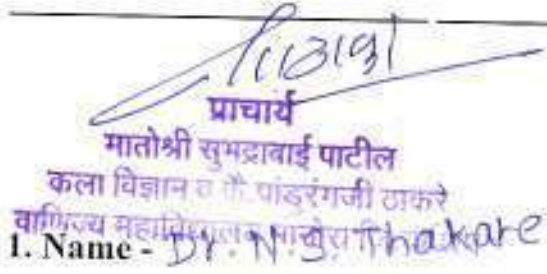 प्राचार्य
मातोश्री सुभद्राबाई पाटील
कला विज्ञान व कै. पांडुरंगजी ठाकरे
वाणिज्य महाविद्यालय
1. Name - Dr. N. J. Thakare